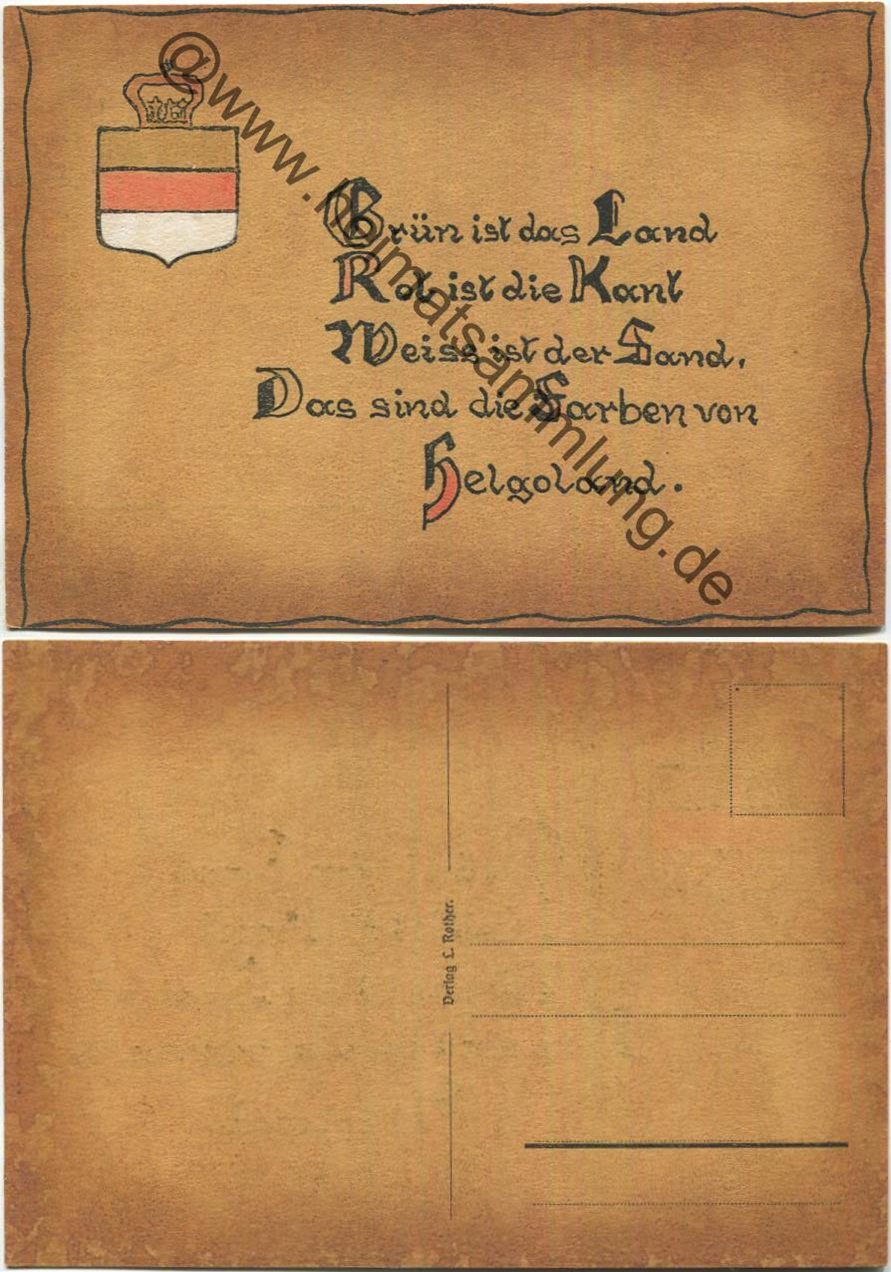 @www.heimatsammlung.de
Grün ist das Land
Rot ist die Kant
Weiss ist der Sand.
Das sind die Farben von
Helgoland.
Verlag L. Rother.